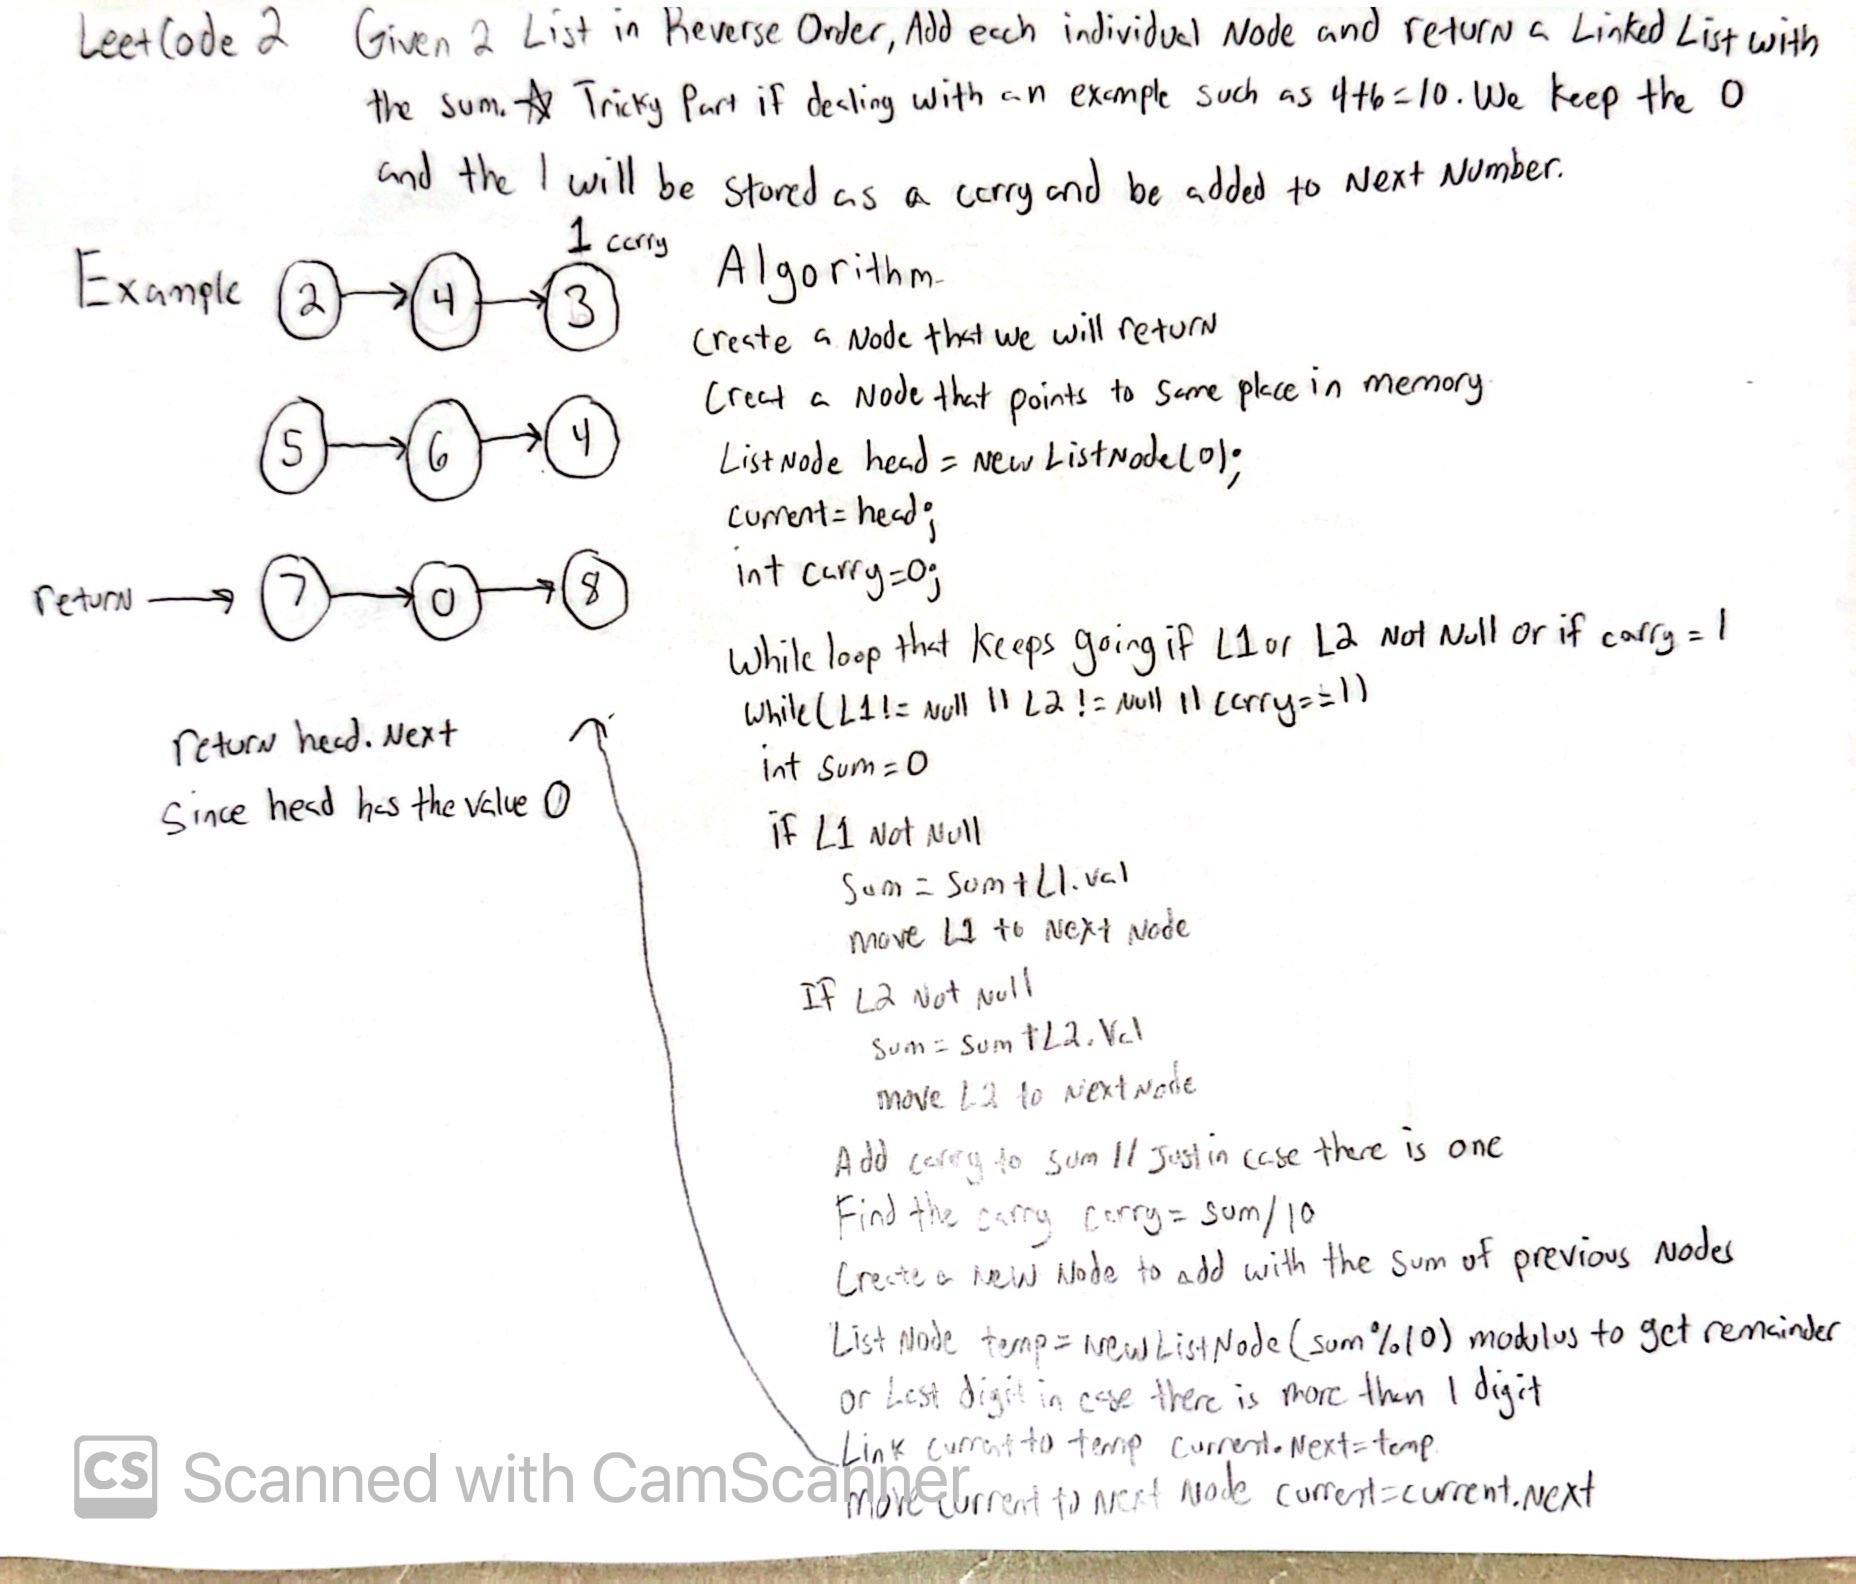 LeetCode 2 Given 2 List in Reverse Order, Add each individual Node and return a Linked List with
the sum. ☆ Tricky Part if dealing with an example such as 4+6=10. We keep the 0
and the 1 will be stored as a carry and be added to Next Number.
1 carry
Example 2 → 4 → 3
5 → 6 → 4
return → 7 → 0 → 8
return head.Next
Since head has the value 0
Algorithm
Create a Node that we will return
Creat a Node that points to same place in memory
ListNode head = New ListNode(0);
current=head;
int carry=0;
While loop that keeps going if L1 or L2 Not Null or if carry = 1
while(L1!= Null || L2 != Null || carry==1)
int sum=0
if L1 Not Null
Sum = Sum+L1.val
move L1 to Next Node
If L2 Not Null
sum = sum +L2.Val
move L2 to Next Node
Add carry to sum // Just in case there is one
Find the carry carry= sum/10
Create a New Node to add with the sum of previous Nodes
List Node temp= New ListNode(sum%10) modulus to get remainder
or Last digit in case there is more then 1 digit
Link current to temp current.Next=temp
move current to Next Node current=current.Next
CS Scanned with CamScanner